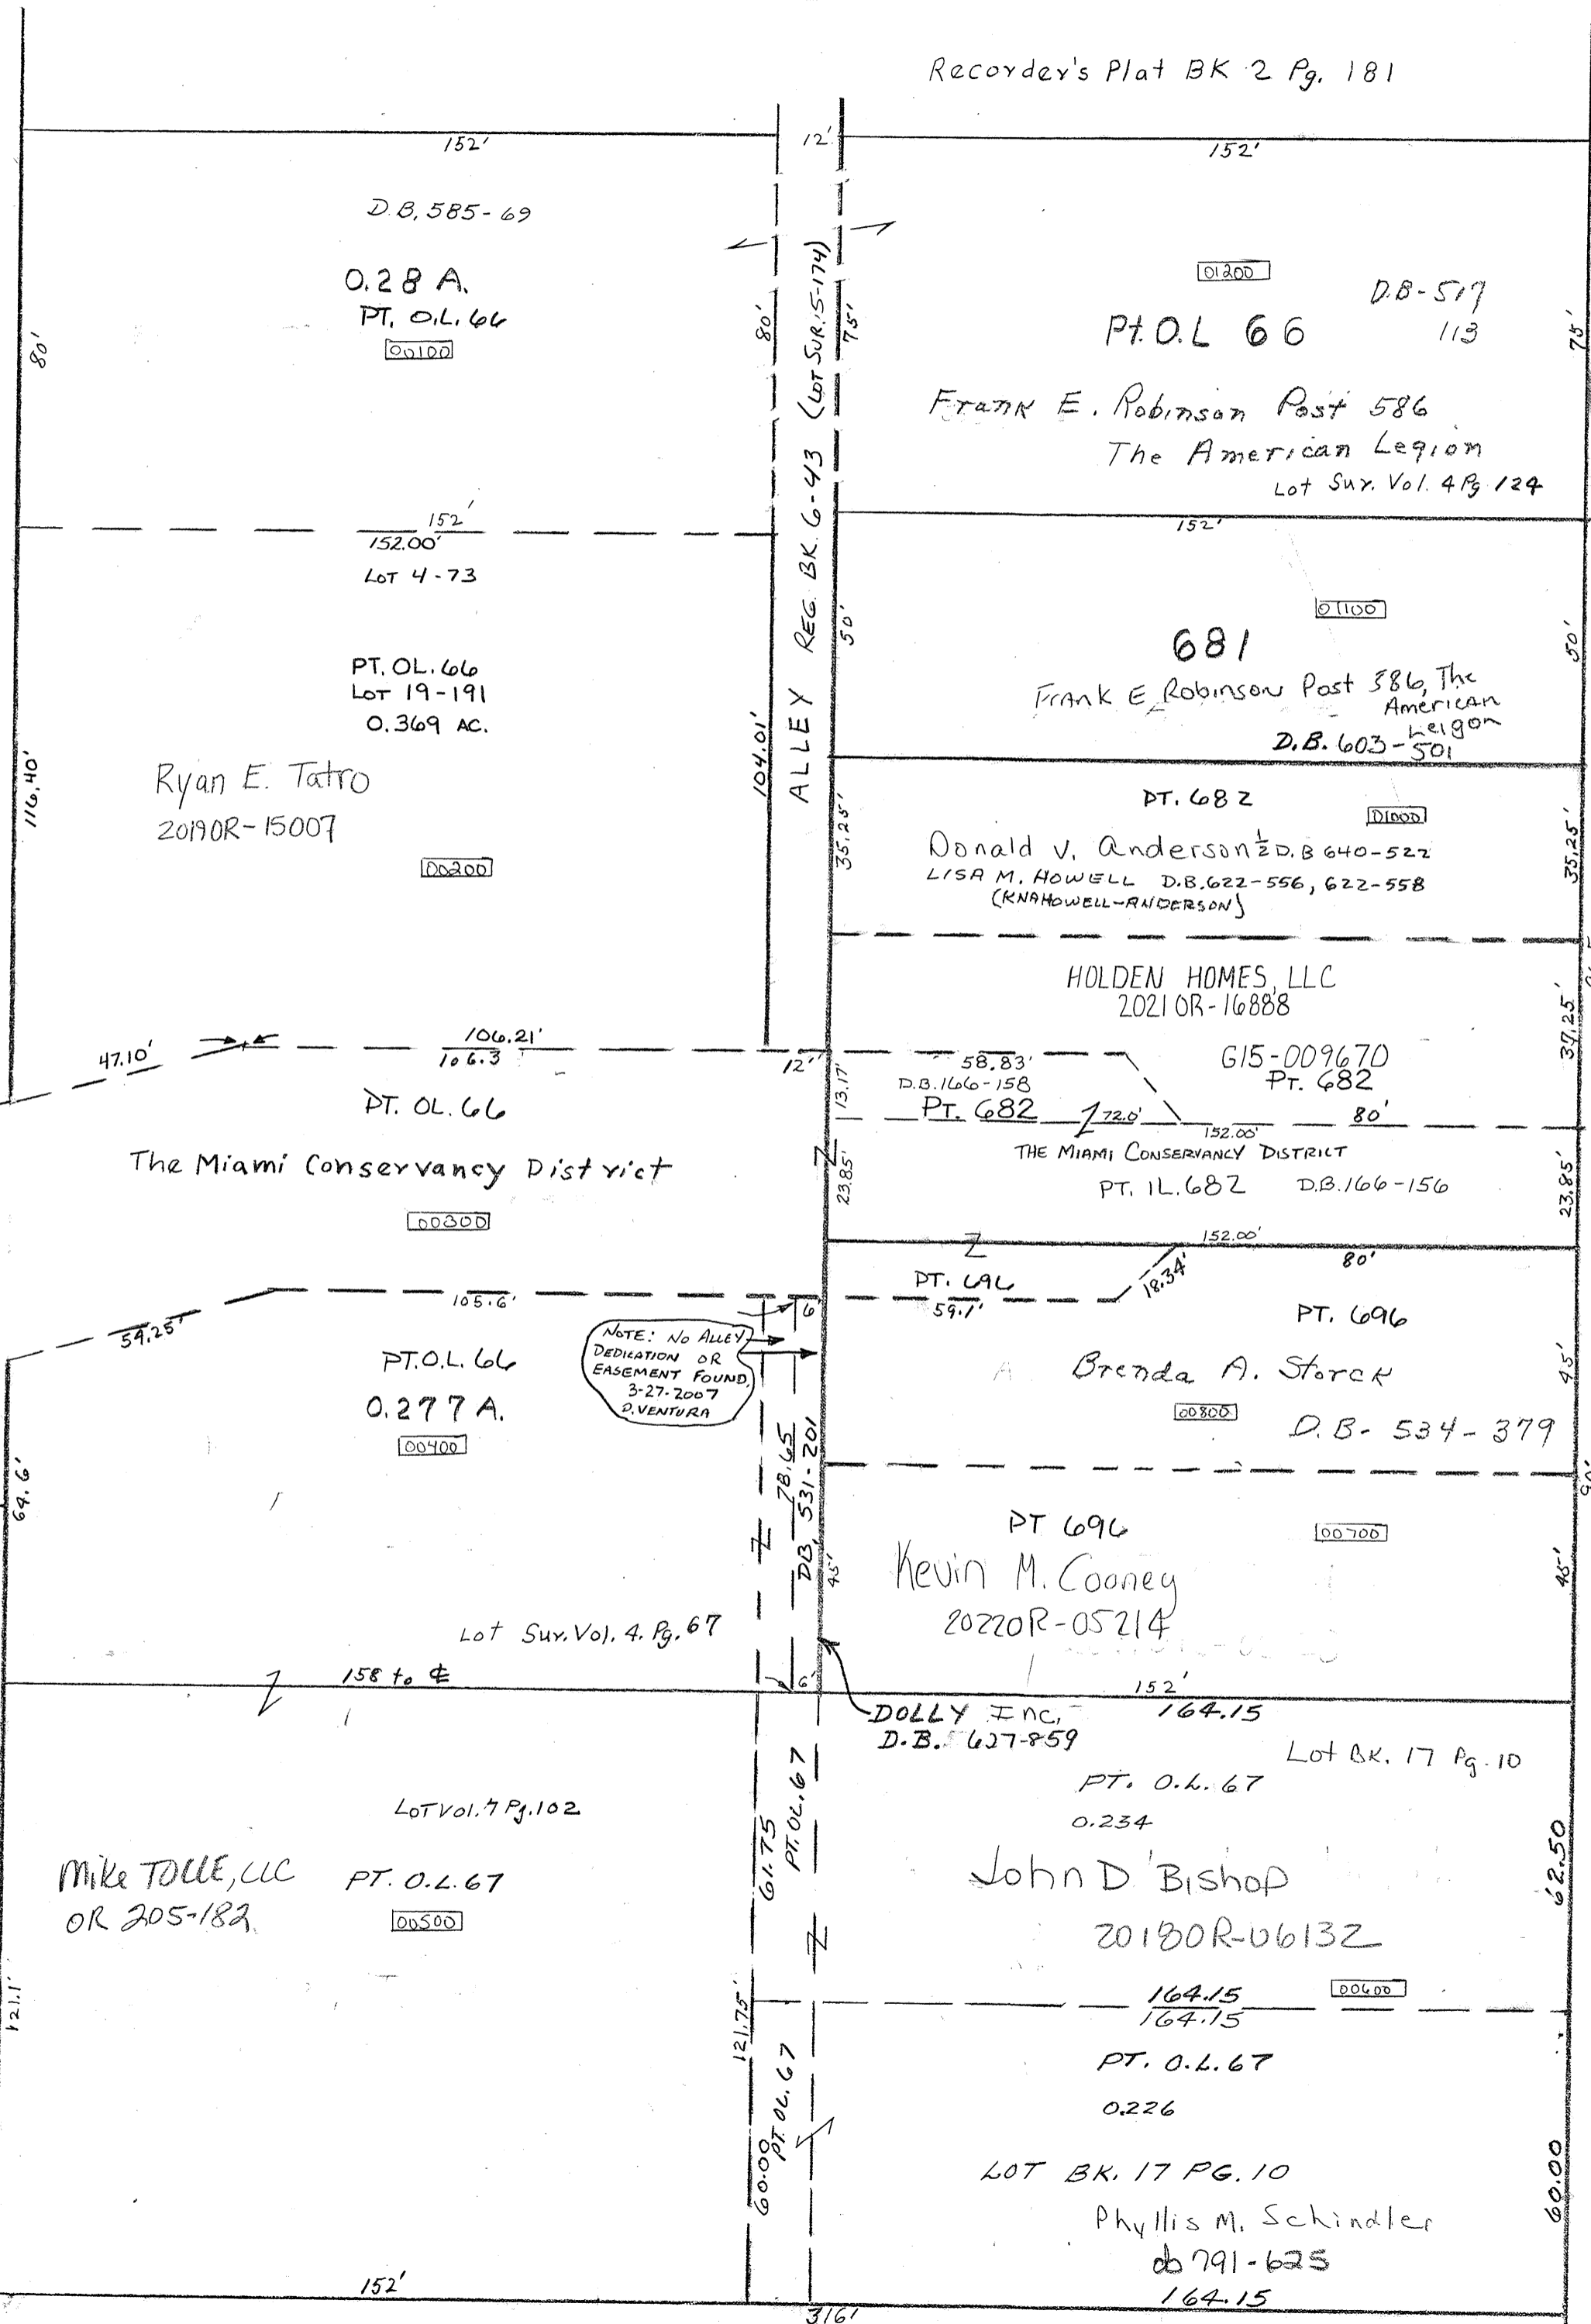 Recorder's Plat BK 2 Pg. 181
152'
12'
152'
D.B. 585-69
0.28 A.
PT. O.L. 66
00100
80'
80'
ALLEY REG. BK. 6-43 (LOT SUR. 15-174)
75'
01200
D.B-517
113
Pt. O.L 66
75'
Frank E. Robinson Post 586
The American Legion
Lot Sur. Vol. 4 Pg 124
152'
152'
152.00'
LOT 4-73
PT. OL. 66
LOT 19-191
0.369 AC.
Ryan E. Tatro
2019OR-15007
00200
116.40'
104.01'
50'
01100
681
50'
Frank E. Robinson Post 586, The
American
Leigon
D.B. 603-501
PT. 682
01000
35.25'
Donald V. Anderson ½ D.B 640-522
LISA M. HOWELL D.B. 622-556, 622-558
(KNAHOWELL-ANDERSON)
35.25'
HOLDEN HOMES, LLC
2021OR-16888
37.25'
G15-009670
PT. 682
47.10'
106.21'
106.3
12'
13.17'
58.83'
D.B. 166-158
PT. 682
72.0'
80'
152.00'
PT. OL. 66
The Miami Conservancy District
00300
23.85'
THE MIAMI CONSERVANCY DISTRICT
PT. IL. 682 D.B. 166-156
23.85'
152.00'
80'
PT. 696
18.34'
59.1'
59.25'
105.6'
6'
NOTE: NO ALLEY
DEDICATION OR
EASEMENT FOUND.
3-27-2007
D. VENTURA
PT. O.L. 66
0.277 A.
00400
64.6'
78.65
DB, 531-201
45'
PT. 696
Brenda A. Storck
00800
D.B- 534-379
45'
90'
PT 696
00700
Kevin M. Cooney
2022OR-05214
45'
Lot Sur. Vol. 4. Pg. 67
158 to ℄
6'
152'
164.15
DOLLY Inc,
D.B. 627-859
Lot BK. 17 Pg. 10
PT. O.L. 67
0.234
John D Bishop
2018OR-06132
62.50
00600
LOT Vol. 7 Pg. 102
Mike TOLLE, LLC
OR 205-182
PT. O.L. 67
00500
121.1'
61.75
PT. OL. 67
121.75'
164.15
164.15
PT. O.L. 67
0.226
60.00
PT. OL. 67
LOT BK. 17 PG. 10
Phyllis M. Schindler
db 791-625
60.00
152'
164.15
316'